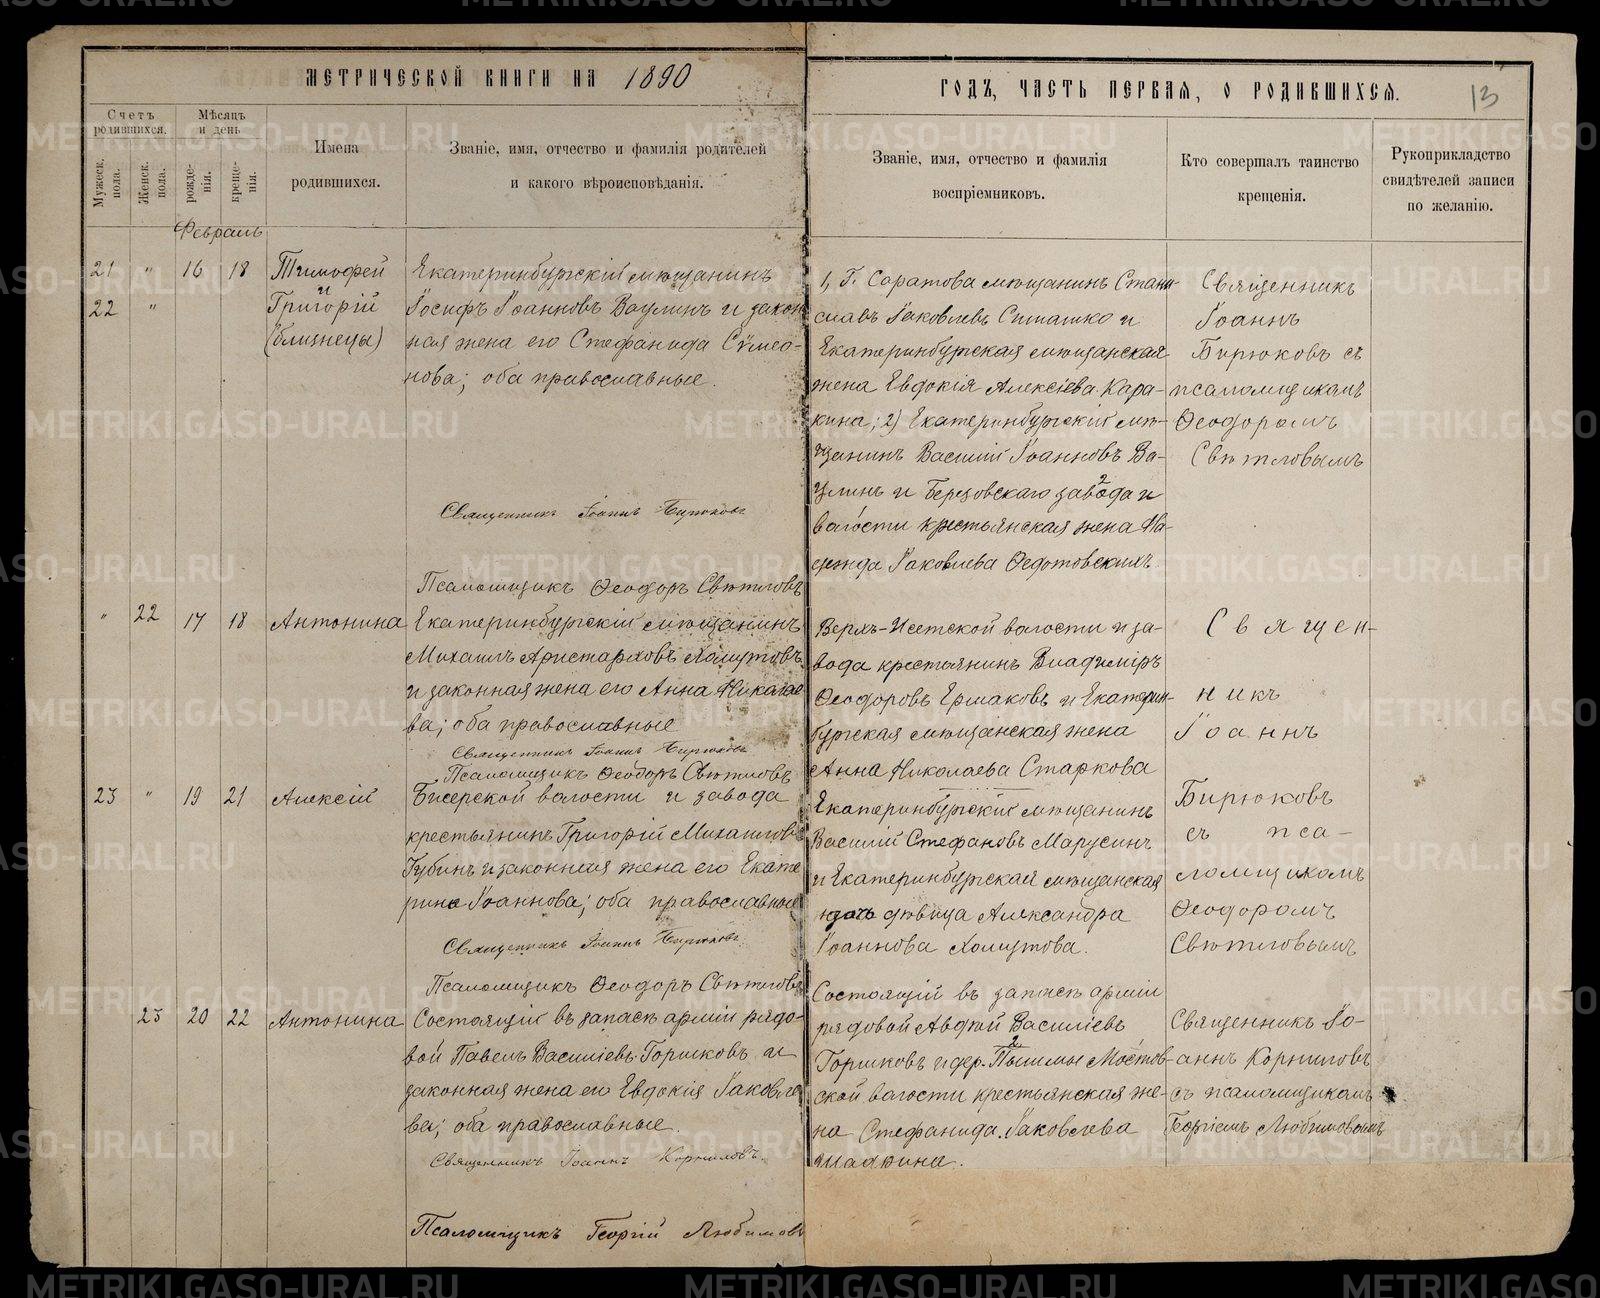 МЕТРИЧЕСКОЙ КНИГИ НА 1890
ГОДЪ, ЧАСТЬ ПЕРВАЯ, О РОДИВШИХСЯ.
13
Счетъ родившихся.
Мужеск. пола.
Женск. пола.
Мѣсяцъ и день
рожде-
нія.
креще-
нія.
Имена
родившихся.
Званіе, имя, отчество и фамилія родителей
и какого вѣроисповѣданія.
Званіе, имя, отчество и фамилія
воспріемниковъ.
Кто совершалъ таинство
крещенія.
Рукоприкладство
свидѣтелей записи
по желанію.
Февраль
21 " 16 18
22 "
Тимофей
и
Григорій
(близнецы)
Екатеринбургскій мѣщанинъ
Іосифъ Іоанновъ Ваулинъ и закон
ная жена его Стефанида Сѵмео-
нова; оба православные.
Священникъ Іоаннъ Бирюковъ
Псаломщикъ Ѳеодоръ Свѣтловъ
1, Г. Саратова мѣщанинъ Стани-
славъ Іаковлевъ Ситашко и
Екатеринбургская мѣщанская
жена Евдокія Алексіева Кара-
кина; 2) Екатеринбургскій мѣ-
щанинъ Василій Іоанновъ Ва-
улинъ и Березовскаго завода и
волости крестьянская жена На-
дежда Іаковлева Ѳедотовскихъ
Священникъ
Іоаннъ
Бирюковъ съ
псаломщикомъ
Ѳеодоромъ
Свѣтловымъ
" 22 17 18
Антонина
Екатеринбургскій мѣщанинъ
Михаилъ Аристарховъ Хомутовъ
и законная жена его Анна Николае
ва; оба православные
Священникъ Іоаннъ Бирюковъ
Псаломщикъ Ѳеодоръ Свѣтловъ
Верхъ-Исетской волости и за-
вода крестьянинъ Владиміръ
Ѳеодоровъ Ермаковъ и Екатерин-
бургская мѣщанская жена
Анна Николаева Старкова
Священ-
никъ
Іоаннъ
Бирюковъ
съ пса-
ломщикомъ
Ѳеодоромъ
Свѣтловымъ
23 " 19 21
Алексій
Бисерской волости и завода
крестьянинъ Григорій Михаиловъ
Губинъ и законная жена его Екате
рина Іоаннова; оба православные
Священникъ Іоаннъ Бирюковъ
Псаломщикъ Ѳеодоръ Свѣтловъ
Екатеринбургскій мѣщанинъ
Василій Стефановъ Марусинъ
и Екатеринбургская мѣщанская
дѣвица Александра
Іоаннова Хомутова.
23 20 22
Антонина
Состоящій въ запасѣ арміи рядо-
вой Павелъ Василіевъ Горшковъ и
законная жена его Евдокія Іаковле
ва; оба православные.
Священникъ Іоаннъ Корниловъ.
Псаломщикъ Георгій Любимовъ
Состоящій въ запасѣ арміи
рядовой Авдій Василіевъ
Горшковъ и дер. Пышмы Мостов-
ской волости крестьянская же-
на Стефанида Іаковлева
Священникъ Іо-
аннъ Корниловъ
съ псаломщикомъ
Георгіемъ Любимовымъ
METRIKI.GASO-URAL.RU